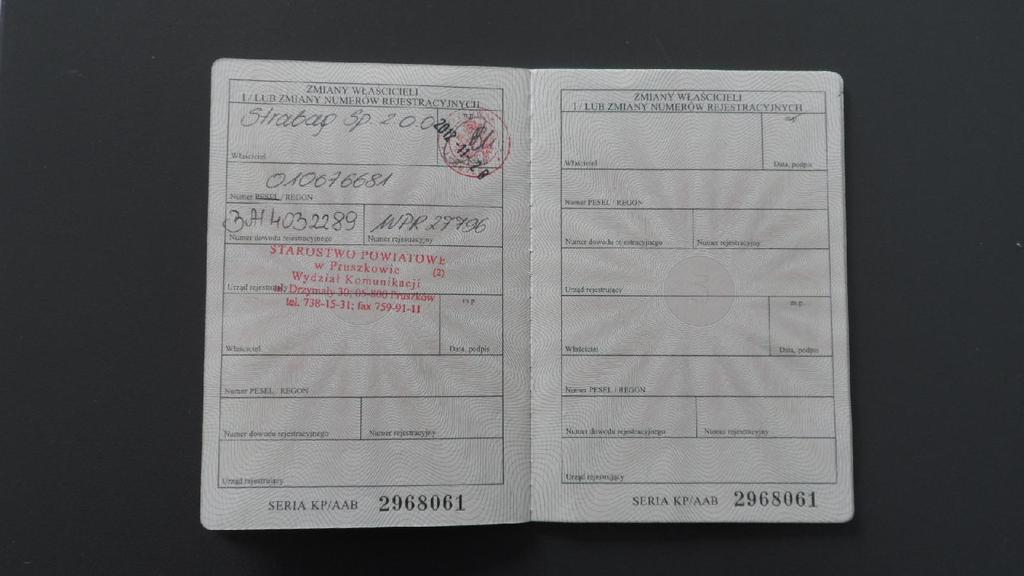 ZMIANY WŁAŚCICIELI
I / LUB ZMIANY NUMERÓW REJESTRACYJNYCH
Strabag Sp. z o.o.
m.p.
2012-11-28
Właściciel
010676681
Numer PESEL / REGON
3AI4032289 WPR 27796
Numer dowodu rejestracyjnego Numer rejestracyjny
STAROSTWO POWIATOWE
w Pruszkowie (2)
Wydział Komunikacji
Urząd rejestrujący
ul. Drzymały 30, 05-800 Pruszków
tel. 738-15-31; fax 759-91-11
m.p.
Właściciel Data, podpis
Numer PESEL / REGON
Numer dowodu rejestracyjnego Numer rejestracyjny
Urząd rejestrujący
SERIA KP/AAB 2968061
ZMIANY WŁAŚCICIELI
I / LUB ZMIANY NUMERÓW REJESTRACYJNYCH
Właściciel Data, podpis
Numer PESEL / REGON
Numer dowodu rejestracyjnego Numer rejestracyjny
Urząd rejestrujący
m.p.
Właściciel Data, podpis
Numer PESEL / REGON
Numer dowodu rejestracyjnego Numer rejestracyjny
Urząd rejestrujący
SERIA KP/AAB 2968061